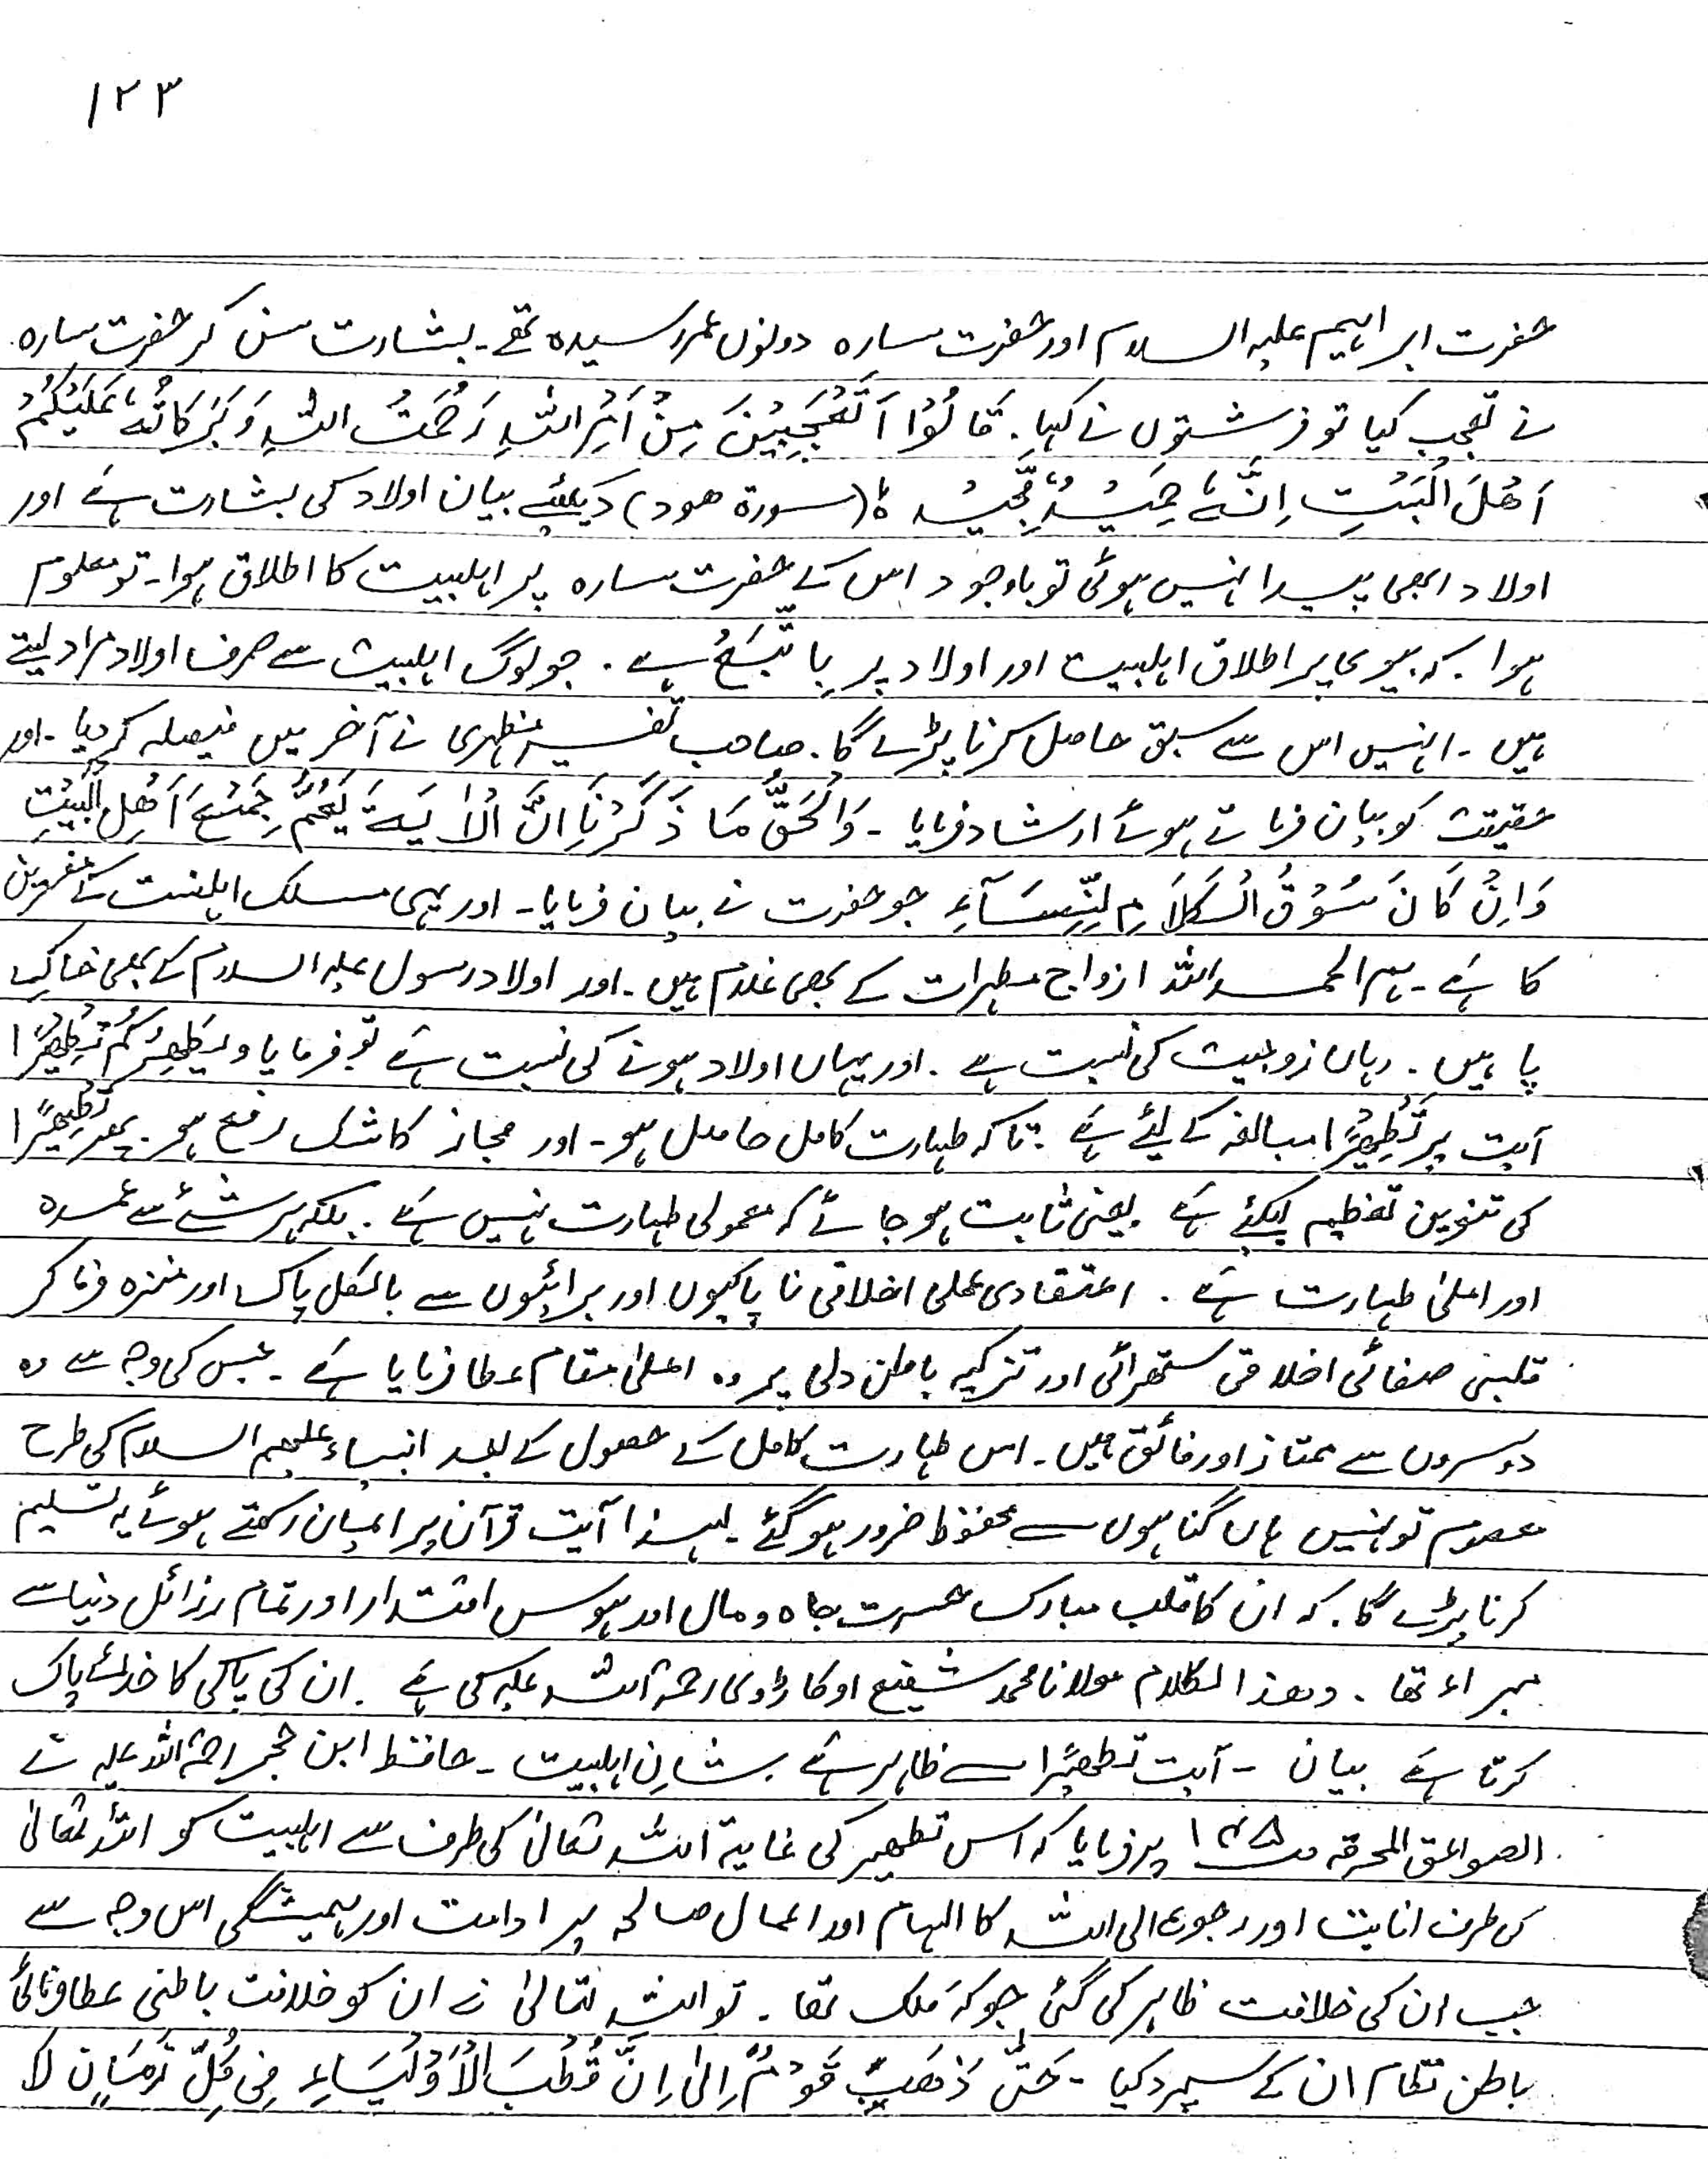 ۱۲۳
حضرت ابراہیم علیہ السلام اور حضرت سارہ دونوں عمر رسیدہ تھے۔ بشارت سن کر حضرت سارہ
نے تعجب کیا تو فرشتوں نے کہا۔ قَالُوْا اَتَعْجَبِيْنَ مِنْ اَمْرِ اللّٰهِ رَحْمَتُ اللّٰهِ وَبَرَكَاتُهٗ عَلَيْكُمْ
اَهْلَ الْبَيْتِ اِنَّهٗ حَمِيْدٌ مَّجِيْد ؕ (سورۃ ھود) دیکھئے بیان اولاد کی بشارت ہے اور
اولاد ابھی پیدا نہیں ہوئی تو باوجود اس کے حضرت سارہ پر اہلبیت کا اطلاق ہوا۔ تو معلوم
ہوا۔ کہ بیوی پر اطلاق اہلبیت اور اولاد پر بِا تَّبَعْ ہے۔ جو لوگ اہلبیت سے صرف اولاد مراد لیتے
ہیں۔ انہیں اس سے سبق حاصل کرنا پڑے گا۔ صاحب تفسیر مظہری نے آخر میں فیصلہ کر دیا۔ اور
حقیقت کو بیان فرماتے ہوئے ارشاد فرمایا۔ وَالْحَقُّ مَا ذَكَرْنَا اِنَّ الْاٰيَةَ يَعُمُّ جَمِيْعَ اَهْلِ الْبَيْتِ
وَاِنْ كَانَ سُوْقُ الْكَلَامِ لِنِّسَآءِ جو حضرت نے بیان فرمایا۔ اور یہی مسلک اہلسنت کے مفسرین
کا ہے۔ ہم الحمد اللہ ازواج مطہرات کے بھی غلام ہیں۔ اور اولاد رسول علیہ السلام کے بھی خاک
پا ہیں۔ وہاں زوجیت کی نسبت ہے۔ اور یہاں اولاد ہونے کی نسبت ہے تو فرمایا ویُطَهِّرَكُمْ تَطْهِيْرًا
آیت پر تَطْهِيْرًا مبالغہ کے لیئے ہے۔ تاکہ طہارت کامل حاصل ہو۔ اور مجاز کا شک رفع ہو۔ پھر تَطْهِيْرًا
کی تنوین تعظیم لیکئے ہے یعنی ثابت ہو جائے کہ معمولی طہارت نہیں ہے۔ بلکہ ہر شئے سے عمدہ
اور اعلیٰ طہارت ہے۔ اعتقادی عملی اخلاقی ناپاکیوں اور برائیوں سے بالکل پاک اور منزہ فرما کر
قلبی صفائی اخلاقی ستھرائی اور تزکیہ باطن دلی پر وہ اعلیٰ مقام عطا فرمایا ہے۔ جس کی وجہ سے وہ
دوسروں سے ممتاز اور فائق ہیں۔ اس طہارت کامل کے حصول کے بعد انبیاء علیھم السلام کی طرح
معصوم تو نہیں ہاں گناہوں سے محفوظ ضرور ہو گئے۔ لہذا آیت قرآن پر ایمان رکھتے ہوئے یہ تسلیم
کرنا پڑے گا۔ کہ ان کا قلب مبارک حسرت جاہ و مال اور ہوس اقتدار اور تمام رذائل دنیا سے
مبراء تھا۔ وھذا الکلام مولانا محمد شفیع اوکاڑوی رحمۃ اللہ علیہ کی ہے۔ ان کی پاکی کا خدائے پاک
کرتا ہے بیان۔ آیت تطھیرًا سے ظاہر ہے شانِ اہلبیت۔ حافظ ابن حجر رحمۃ اللہ علیہ نے
الصواعق المحرقہ ص پر فرمایا کہ اس تطھیر کی غایۃ اللہ تعالیٰ کی طرف سے اہلبیت کو اللہ تعالیٰ
کی طرف انابت اور رجوع الی اللہ کا الہام اور اعمال صالحہ پر ادامت اور ہمیشگی اس وجہ سے
جب ان کی خلافت ظاہر کی گئی جو کہ مَلک تھا۔ تو اللہ تعالیٰ نے ان کو خلافت باطنی عطا فرمائی
باطن نظام ان کے سپرد کیا۔ حَتّٰی ذَهَبَ قَوْمٌ اِلٰی اِنَّ قُطْبَ الْاَوْلِيَاءِ فِیْ كُلِّ زَمَانٍ لا